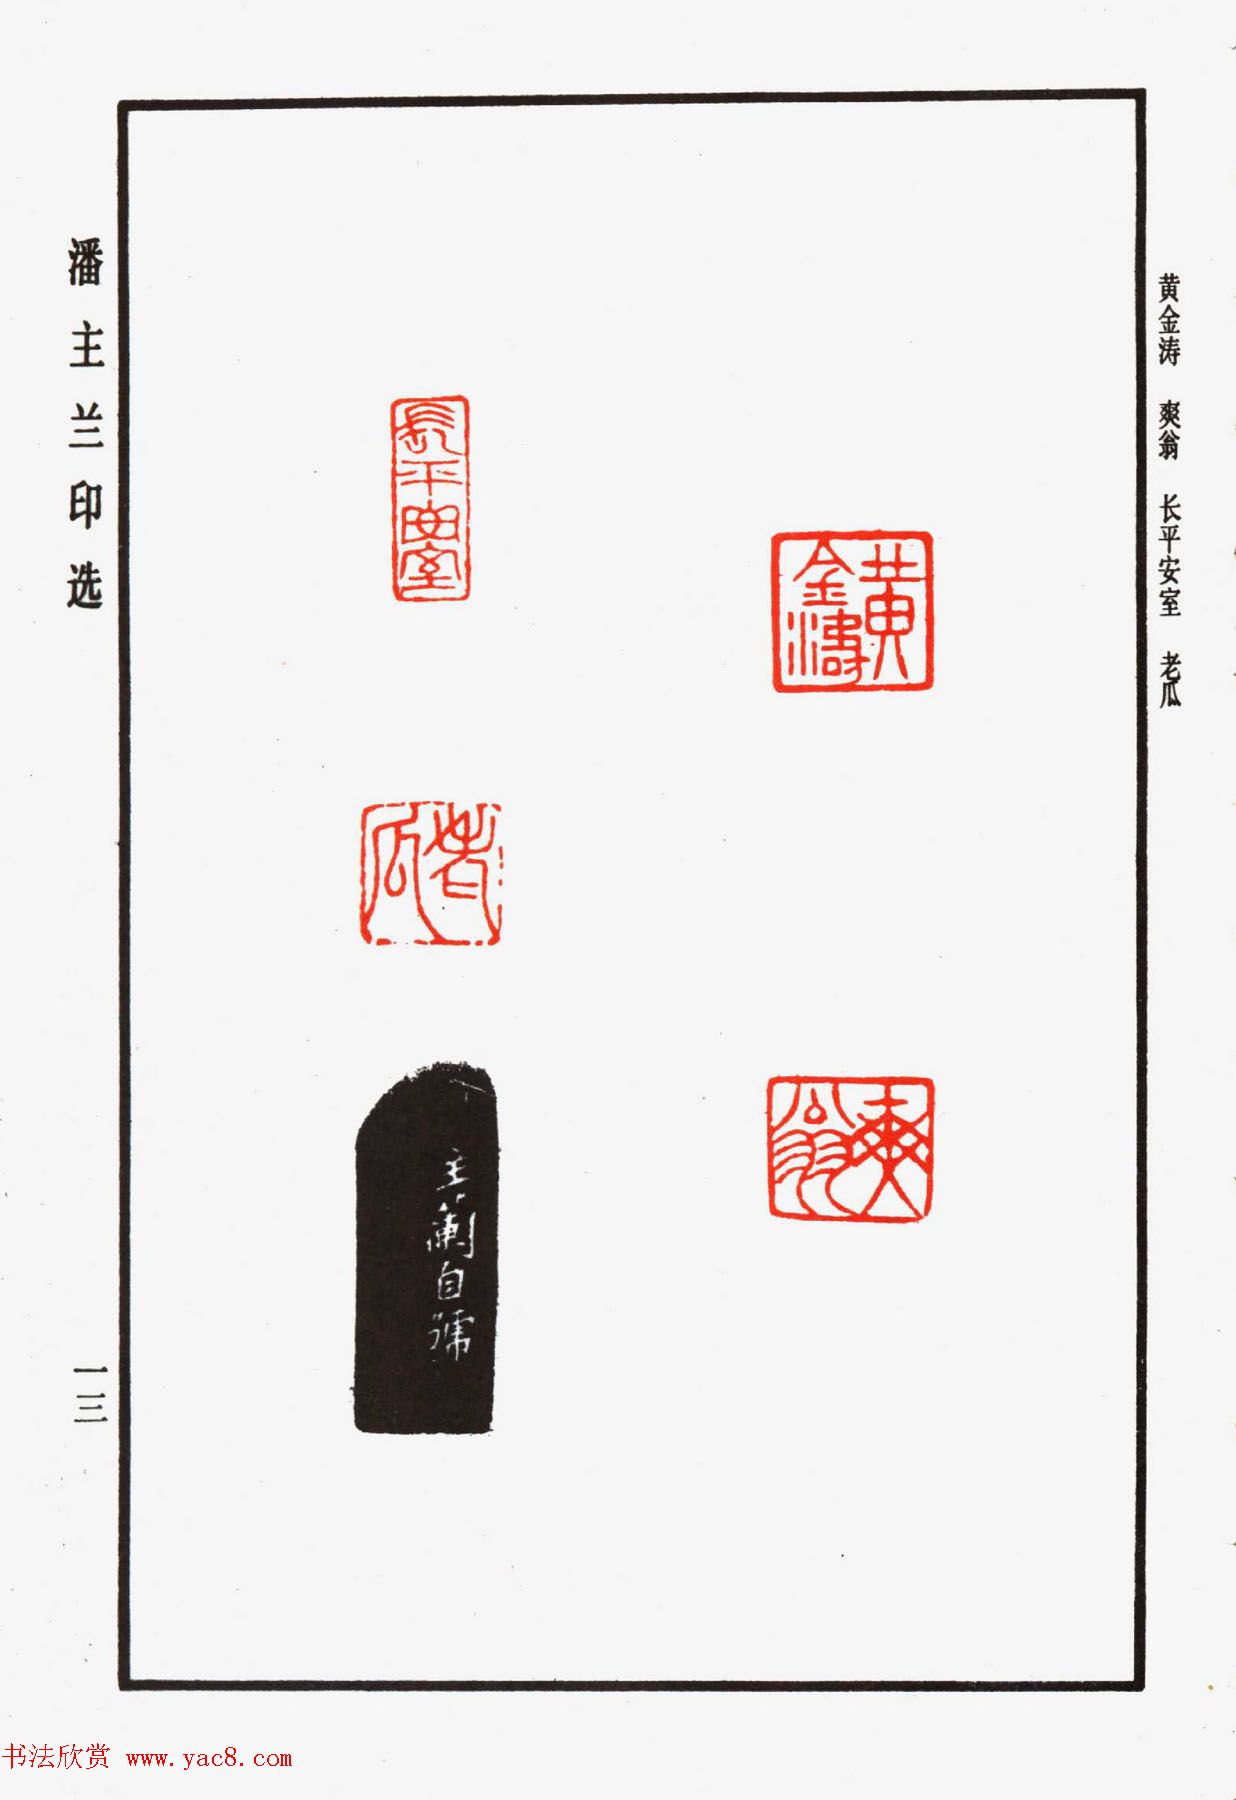 黄金涛　爽翁　长平安室　老瓜
黄金濤
爽翁
長平安室
老瓜
主蘭自號
潘主兰印选
一三
书法欣赏 www.yac8.com